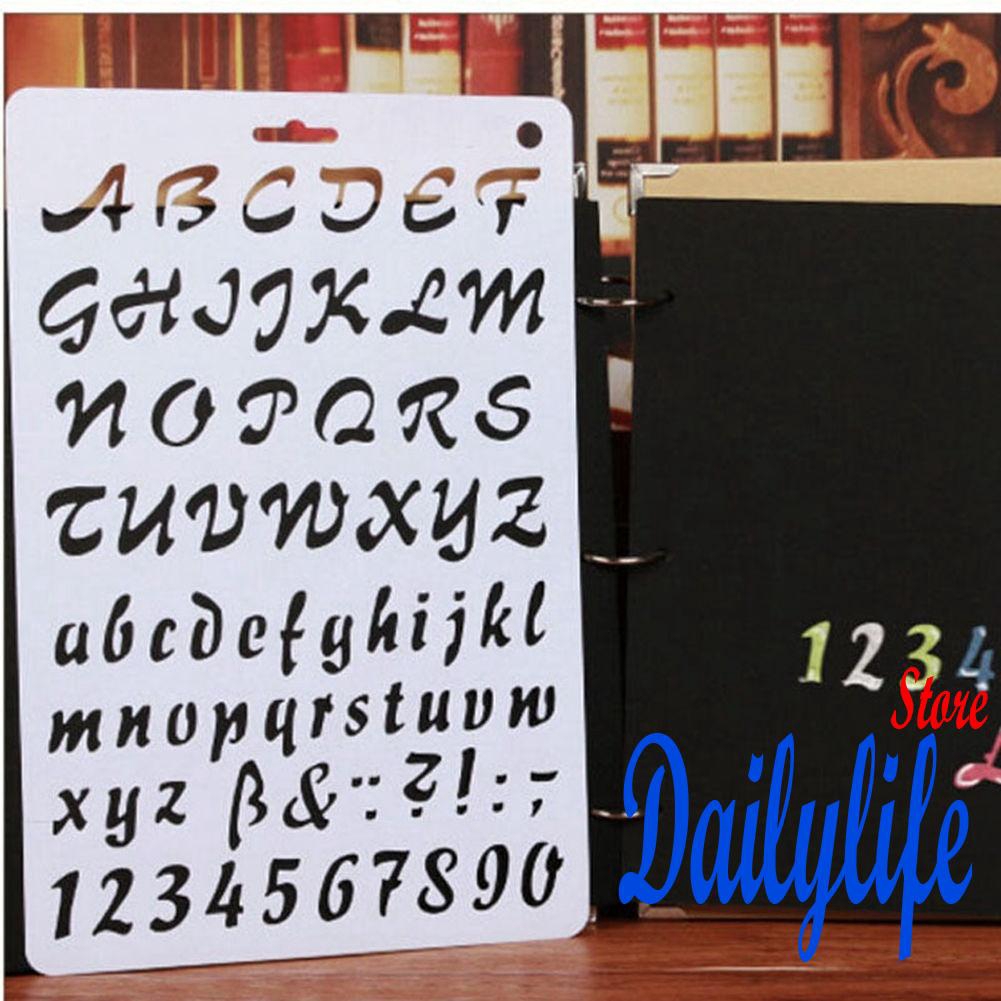 A B C D E F
G H I J K L M
N O P Q R S
T U V W X Y Z
a b c d e f g h i j k l
m n o p q r s t u v w
x y z β & : ? ! : -
1 2 3 4 5 6 7 8 9 0
1 2 3 4
Store
Dailylife